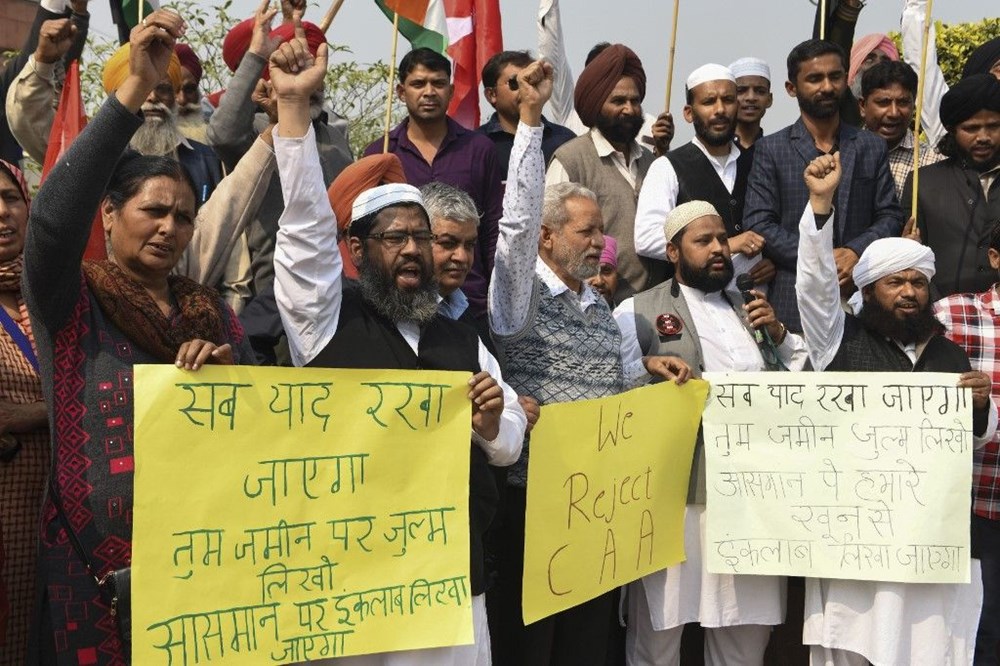 सब याद रखा
जाएगा
तुम जमीन पर जुल्म
लिखो
आसमान पर इंकलाब लिखा
जाएगा
We
Reject
CAA
सब याद रखा जाएगा
तुम जमीन जुल्म लिखो
आसमान पे हमारे
खून से
इंकलाब लिखा जाएगा